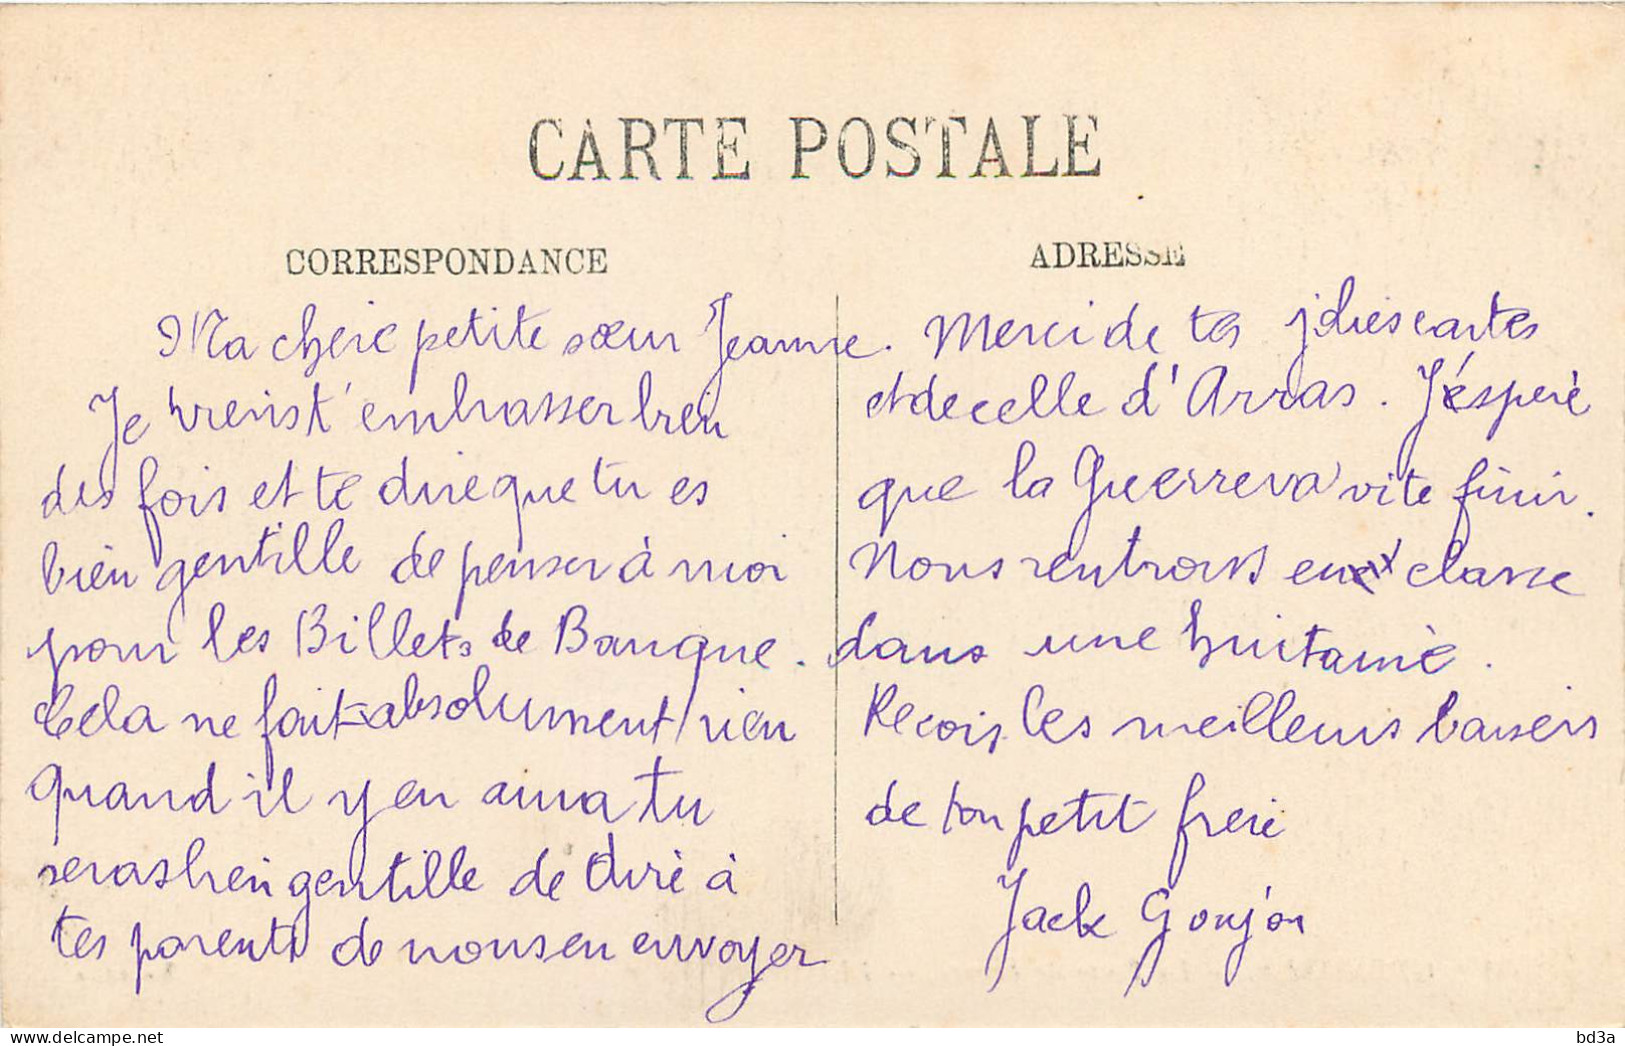 CARTE POSTALE
CORRESPONDANCE
Ma cherie petite sœur Jeanne.
Je viens t'embrasser bien
des fois et te dire que tu es
bien gentille de penser à moi
pour les Billets de Banque.
Cela ne fait absolument rien
quand il y en aura tu
seras bien gentille de dire à
tes parents de nous en envoyer
ADRESSE
Merci de tes jolies cartes
et de celle d'Arras. J'éspere
que la Guerre va vite finir.
Nous rentrons en classe
dans une huitaine.
Recois les meilleurs baisers
de ton petit frere
Jack Goujon
bd3a